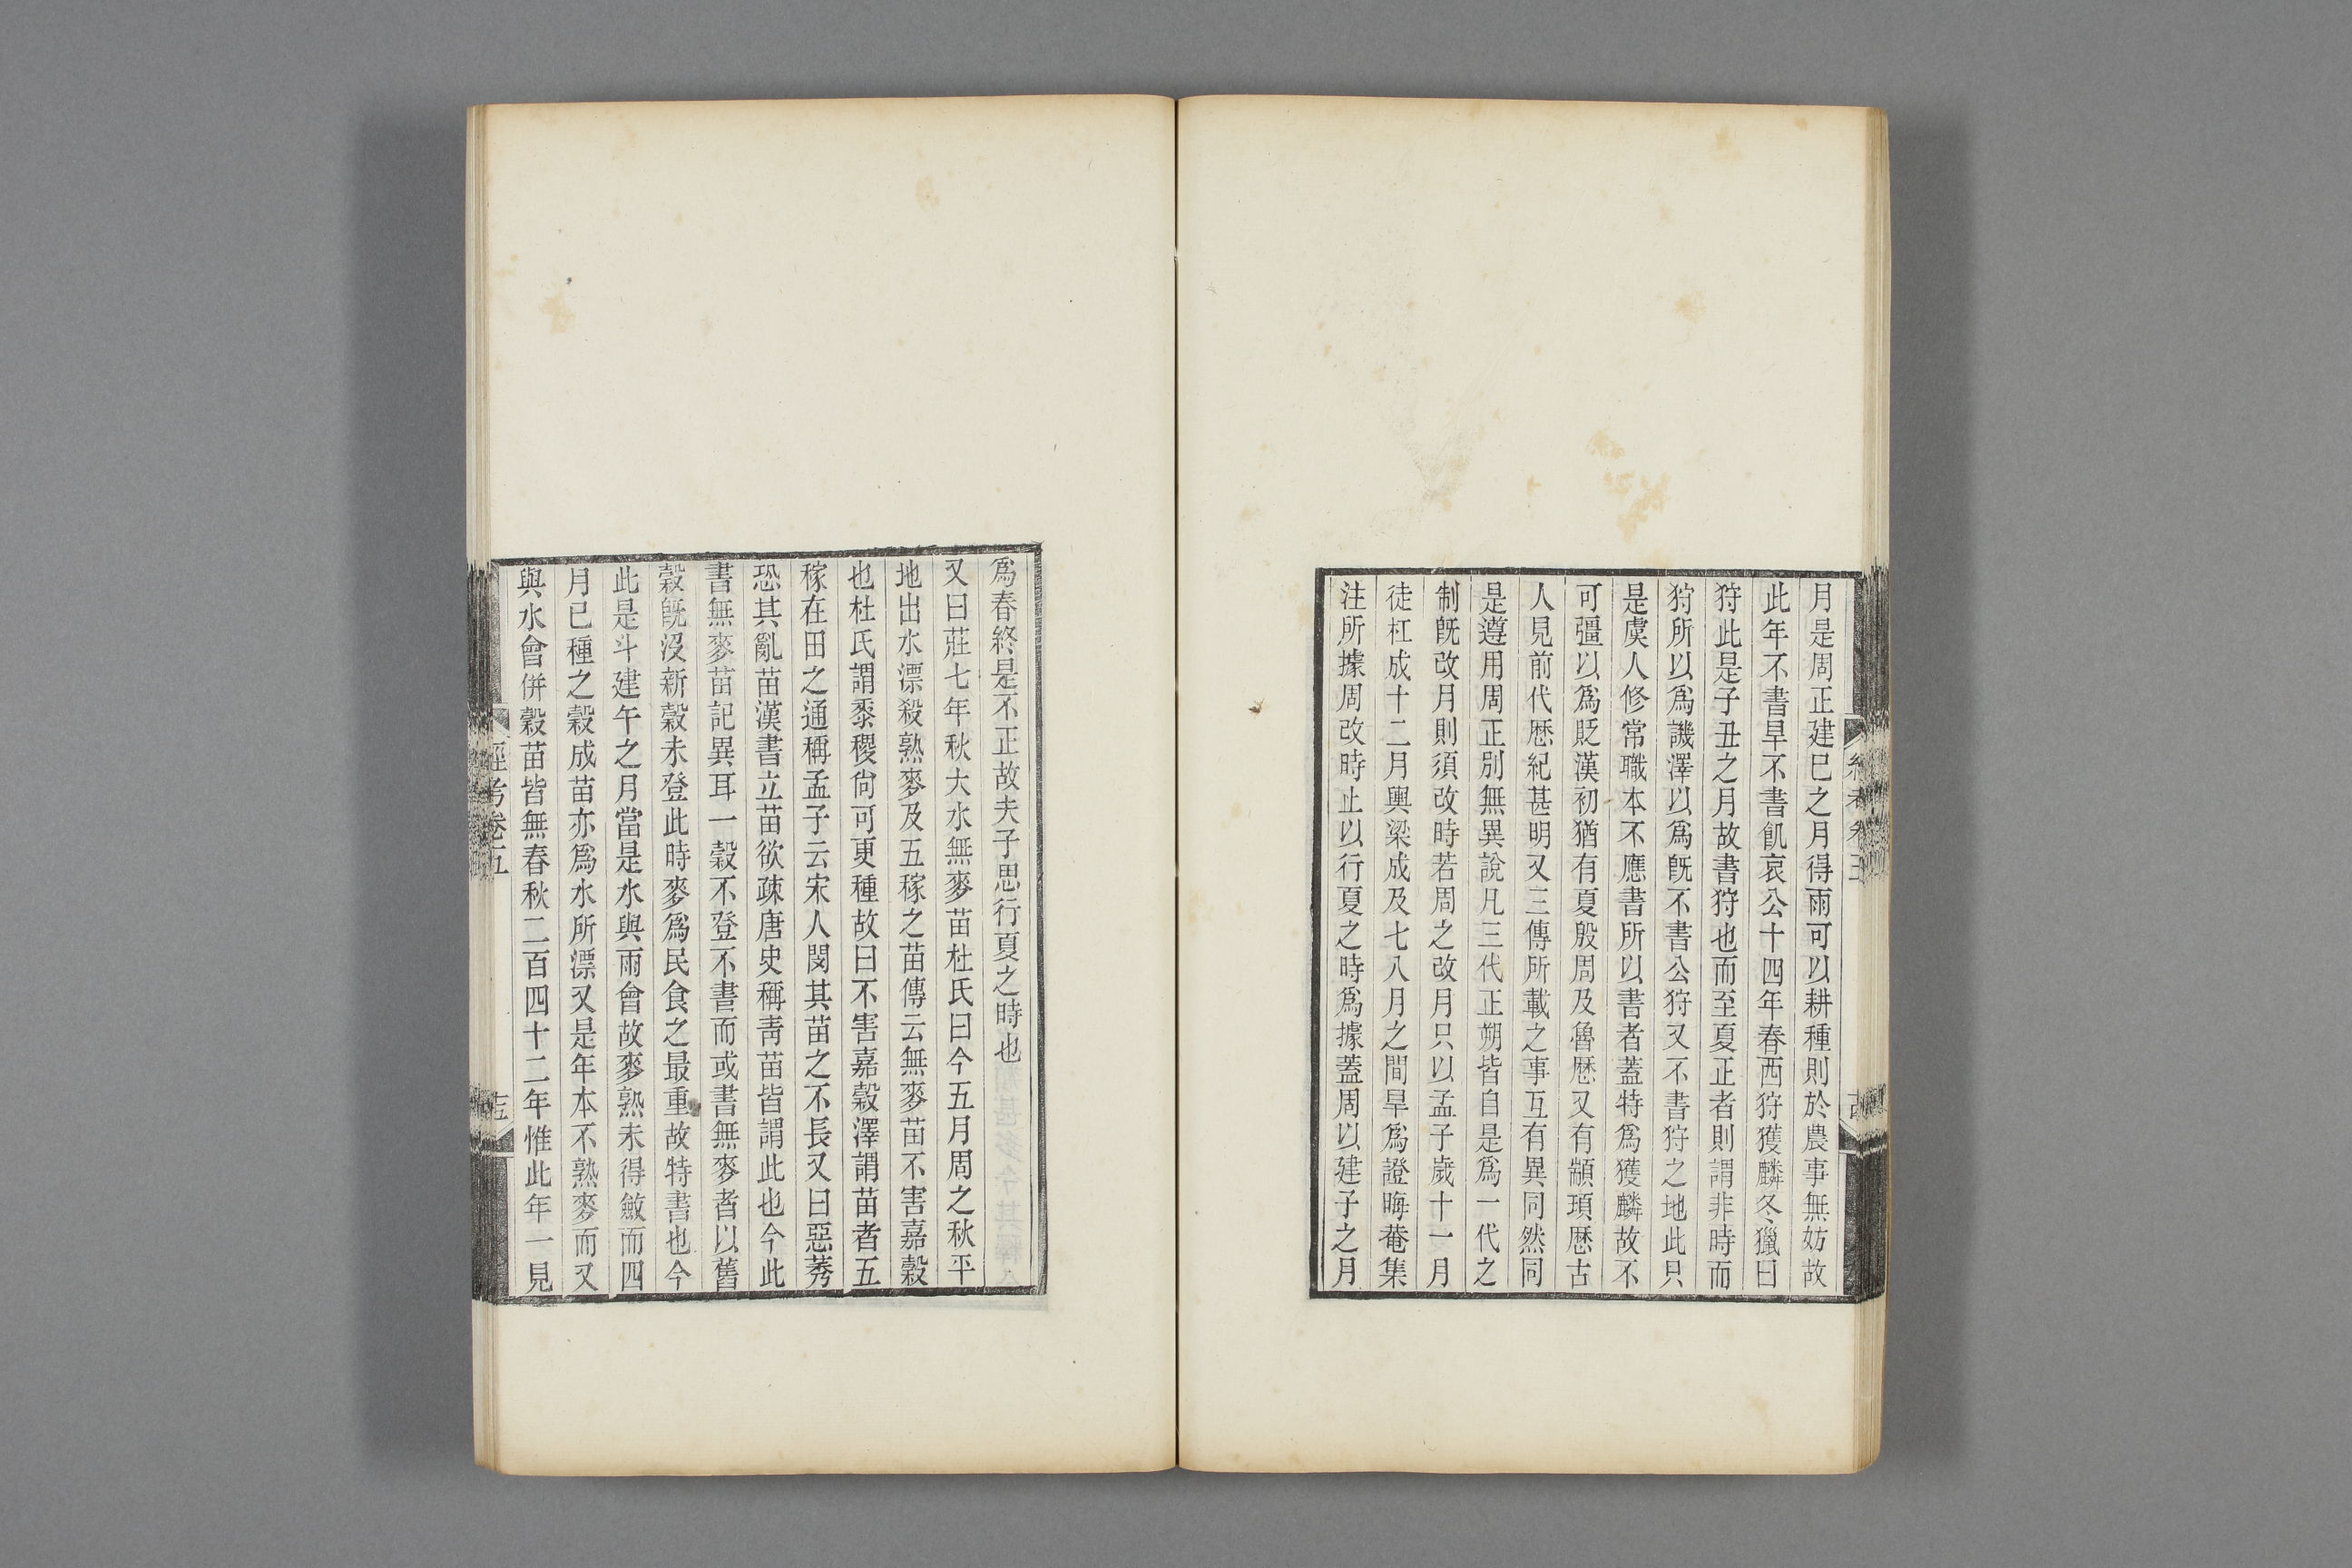 月是周正建巳之月得雨可以耕種則於農事無妨故
此年不書旱不書飢哀公十四年春西狩獲麟冬獵曰
狩此是子丑之月故書狩也而至夏正者則謂非時而
狩所以爲譏澤以爲旣不書公狩又不書狩之地此只
是虞人修常職本不應書所以書者蓋特爲獲麟故不
可彊以爲貶漢初猶有夏殷周及魯歷又有顓頊歷古
人見前代歷紀甚明又三傳所載之事互有異同然同
是遵用周正別無異說凡三代正朔皆自是爲一代之
制旣改月則須改時若周之改月只以孟子歲十一月
徒杠成十二月輿梁成及七八月之間旱爲證晦菴集
注所據周改時止以行夏之時爲據蓋周以建子之月
爲春終是不正故夫子思行夏之時也
又曰莊七年秋大水無麥苗杜氏曰今五月周之秋平
地出水漂殺熟麥及五稼之苗傳云無麥苗不害嘉穀
也杜氏謂黍稷尙可更種故曰不害嘉穀澤謂苗者五
稼在田之通稱孟子云宋人閔其苗之不長又曰惡莠
恐其亂苗漢書立苗欲疎唐史稱靑苗皆謂此也今此
書無麥苗記異耳一穀不登不書而或書無麥者以舊
穀旣沒新穀未登此時麥爲民食之最重故特書也今
此是斗建午之月當是水與雨會故麥熟未得斂而四
月已種之穀成苗亦爲水所漂又是年本不熟麥而又
與水會併穀苗皆無春秋二百四十二年惟此年一見
經考卷五